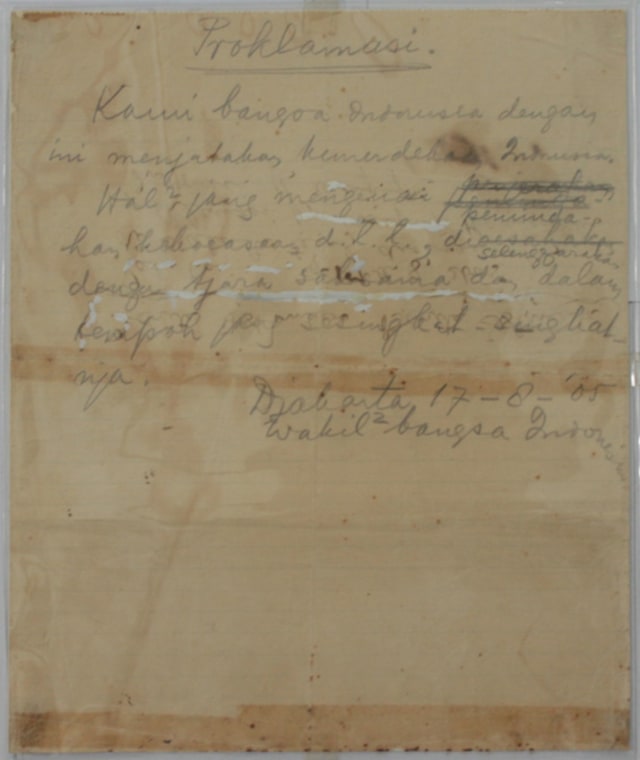 Proklamasi.
Kami bangsa Indonesia dengan
ini menjatakan kemerdekaan Indonesia.
Hal² jang mengenai
peminda-
han kekoeasaan d.l.l., dioesahakan
selenggarakan
dengan tjara saksama dan dalam
tempoh jang sesingkat-singkat-
nja.
Djakarta, 17-8-'05
Wakil² bangsa Indonesia